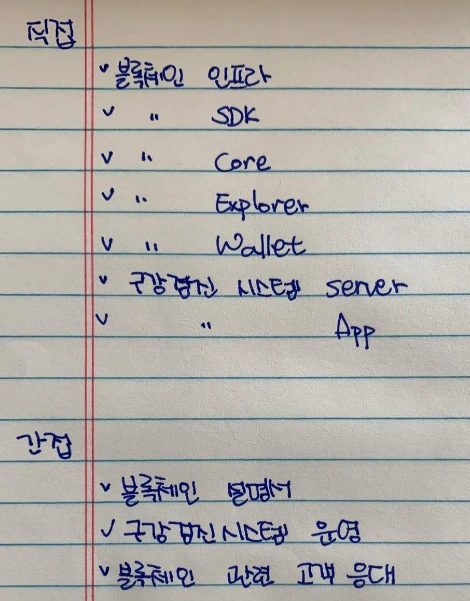 직접
v 블록체인 인프라
v " SDK
v " Core
v " Explorer
v " Wallet
v 구강검진 시스템 server
v " App
간접
v 블록체인 설명서
v 구강검진시스템 운영
v 블록체인 관련 고객 응대